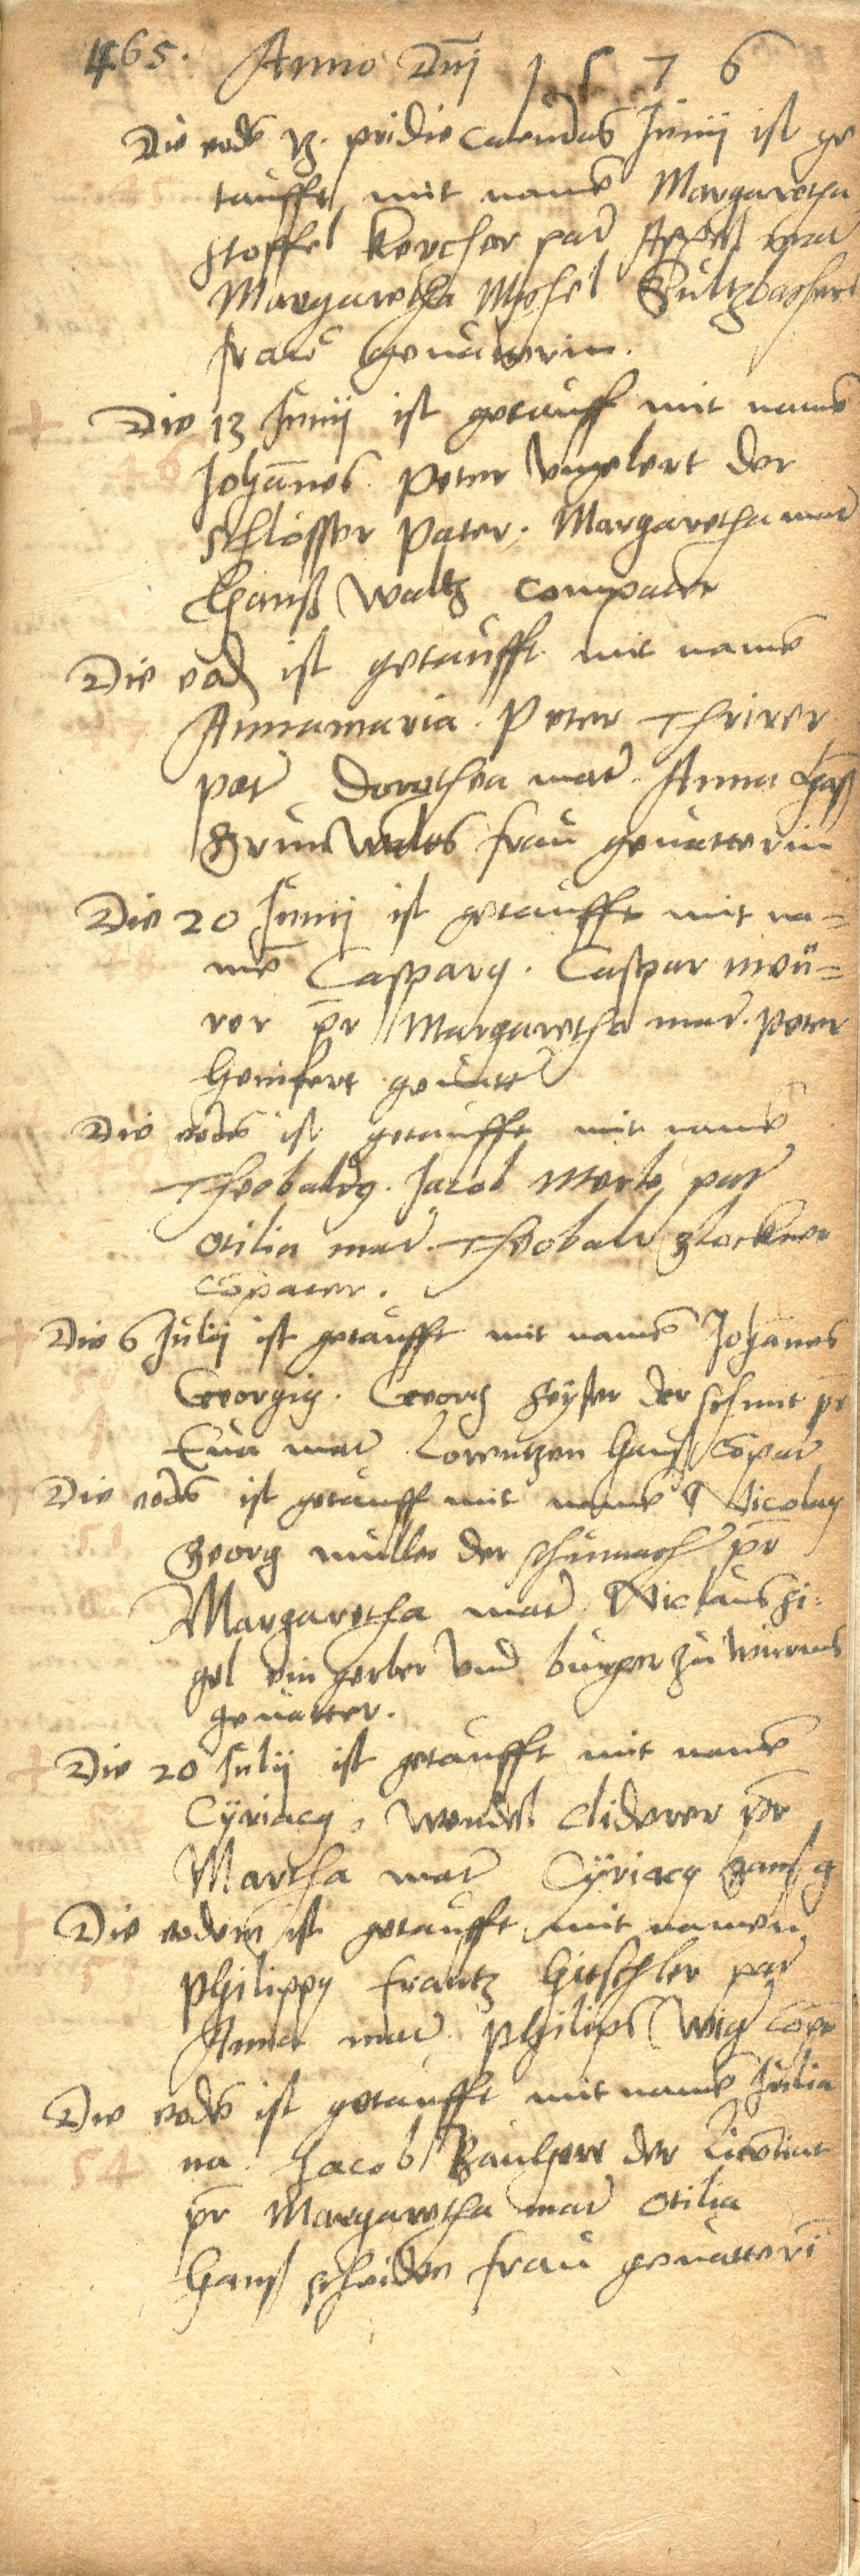 465. Anno Dni 1576
Die eode pridie Calendas Junij ist ge
taufft mit name Margaretha
Stoffel Kercher pat Appel mat
Margaretha Michel Sultzbachers
frau gevatterin.
Die 13 Junij ist getauff mit name
Johanes. Peter Engelert der
schlosser Pater. Margaretha mat
Hanß Waltz Compater
Die eod ist getaufft mit name
Annamaria. Peter
pat Dorothea mat. Anna
Grunwalds frau gevatterin
Die 20 Junij ist getaufft mit na=
me Caspary. Caspar meü=
rer pr Margaretha mat. Peter
gevatt
Die eode ist getaufft mit name
Theobaldy. Jacob Merle pat
Otilia mat. Theobalt glockner
copater.
Die 6 Julij ist getaufft mit name Johanes
Georgiy. Georg der schmit pr
Eva mat Lorentzen Hanß copat
Die eode ist getauff mit name Nicolay
Georg müller der schumach pr
Margaretha mat. Niclaus
gel ein gerber und burger zu wurms
gevatter.
Die 20 Julij ist getaufft mit name
Cÿriacy, Wendel pr
Martha mat Cÿriacy
Die eodem ist getaufft mit namen
Philippy Frantz pat
Anna mat. Philips copr
Die eode ist getaufft mit name Julia
na. Jacob der
pr Margaretha mat Otilia
Hanß frau gevatteri
54